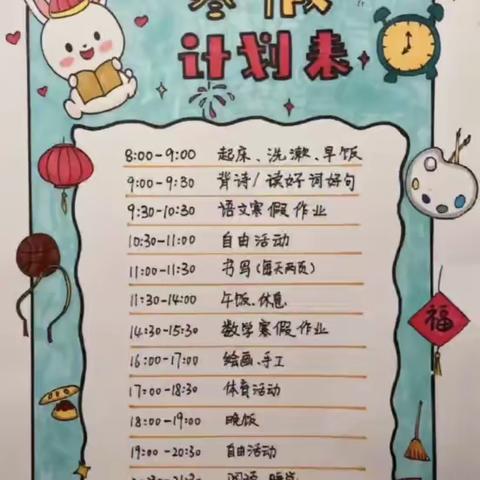 寒假
计划表
8:00-9:00 起床、洗漱、早饭
9:00-9:30 背诗/读好词好句
9:30-10:30 语文寒假作业
10:30-11:00 自由活动
11:00-11:30 书写(每天两页)
11:30-14:00 午饭、休息
14:30-15:30 数学寒假作业
16:00-17:00 绘画、手工
17:00-18:30 体育活动
18:00-19:00 晚饭
19:00-20:30 自由活动
阅读、睡觉
福